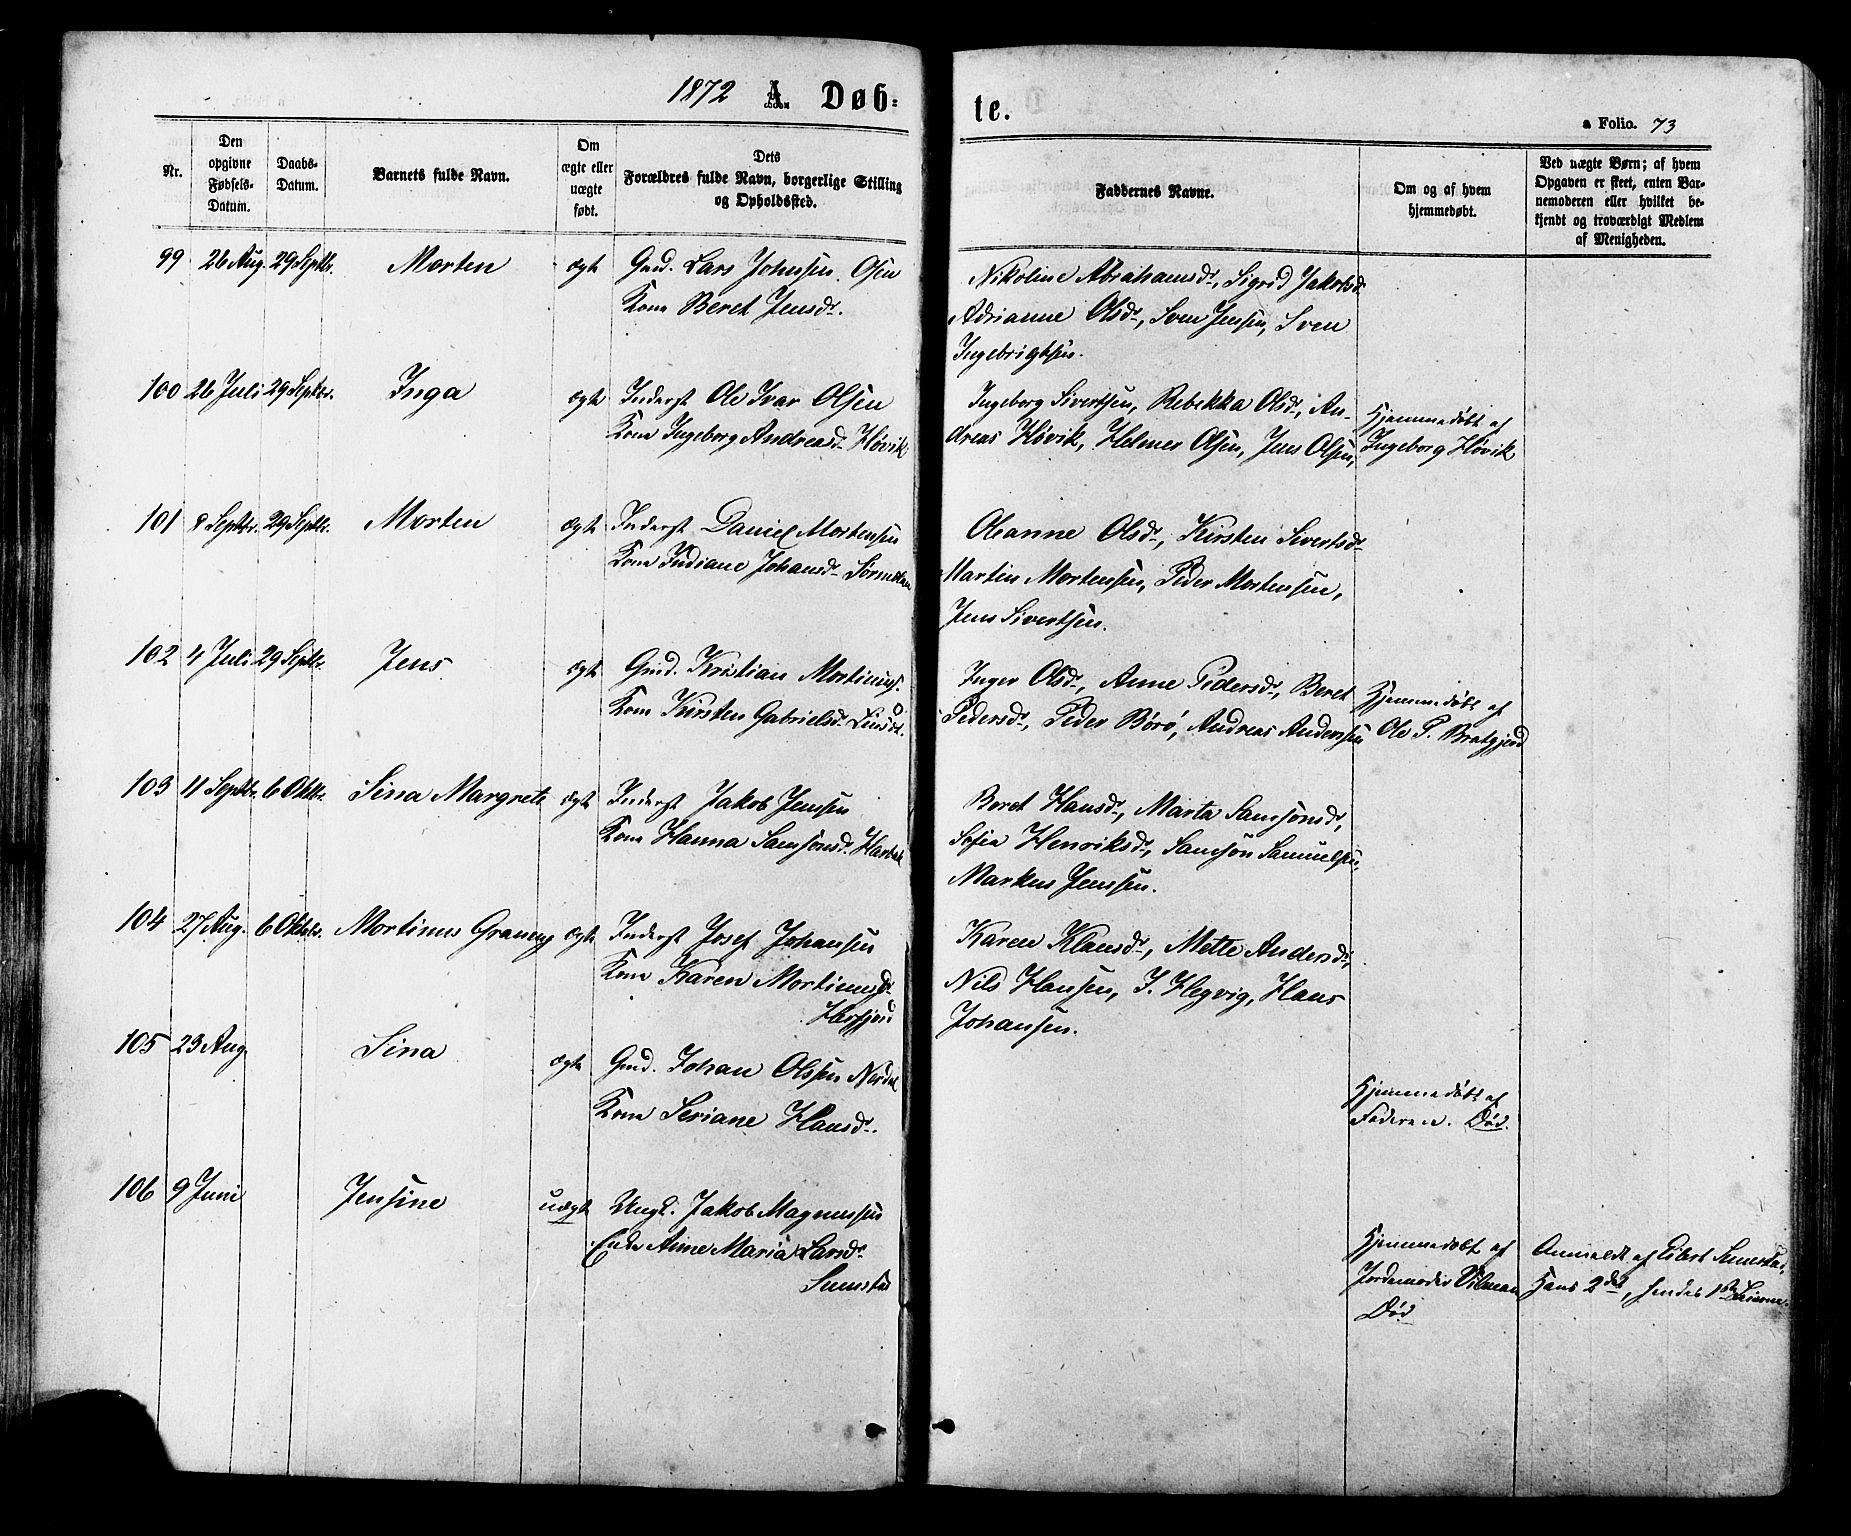 1872 A. Døb=
te.
a Folio. 73
Nr.
Den opgivne Fødsels-Datum.
Daabs-Datum.
Barnets fulde Navn.
Om ægte eller uægte født.
Dets Forældres fulde Navn, borgerlige Stilling og Opholdssted.
Faddernes Navne.
Om og af hvem hjemmedøbt.
Ved uægte Børn; af hvem Opgaven er skeet, enten Barnemoderen eller hvilket bekjendt og troværdigt Medlem af Menigheden.
99 26 Aug. 29 Septbr. Morten ægte Gmd. Lars Johnsen Osen
Kone Beret Jensdr.
Nikoline Abrahamsdr, Sigrid Jakobsdr
Adrianne Olsdr, Sven Jensen, Sven
Ingebrigtsen.
100 26 Juli 29 Septbr. Inga ægte Inderst Ole Ivar Olsen
Kone Ingeborg Andreasdr Høvik
Ingeborg Sivertsen, Rebekka Olsdr, An-
dreas Høvik, Helmer Olsen, Jens Olsen,
Hjemmedøbt af
Ingeborg Høvik
101 8 Septbr. 29 Septbr. Morten ægte Inderst Daniel Mortensen
Kone Indiane Johansdr
Oleanne Olsdr, Kirsten Sivertsdr
Martin Mortensen, Peder Mortensen,
Jens Sivertsen.
102 4 Juli 29 Septbr. Jens ægte Gmd. Kristian Mortinus.
Kone Kirsten Gabrielsdr
Inger Olsdr, Anne Pedersdr, Beret
Pedersdr, Peder Børø, Andreas Anderssen
Hjemmedøbt af
Ole P. Bratgjerd
103 11 Septbr. 6 Oktbr. Sina Margrete ægte Inderst Jakob Jensen
Kone Hanna Samsonsdr. Harbak
Beret Hansdr, Marta Samsonsdr,
Sofia Henriksdr, Samson Samuelsen,
Markus Jenssen.
104 27 Aug. 6 Oktobr. Mortinus ægte Inderst Josef Johansen
Kone Karen Mortinusdr
Harfjord
Karen Klausdr, Mette Andersdr,
Nils Hansen, J. Hegvig, Hans
Johansen.
105 23 Aug. Sina ægte Gmd. Johan Olssen
Kone Seriane Hansdr.
Hjemmedøbt af
Faderen. Død.
106 9 Juni Jensine uægte Ungk. Jakob Magnussen
Enke Anne Maria Larsdr
Sumstad
Hjemmedøbt af
Jordemoder
Død
Anmeldt af Eibert Sumstad.
Hans 2det, hendes 1ste